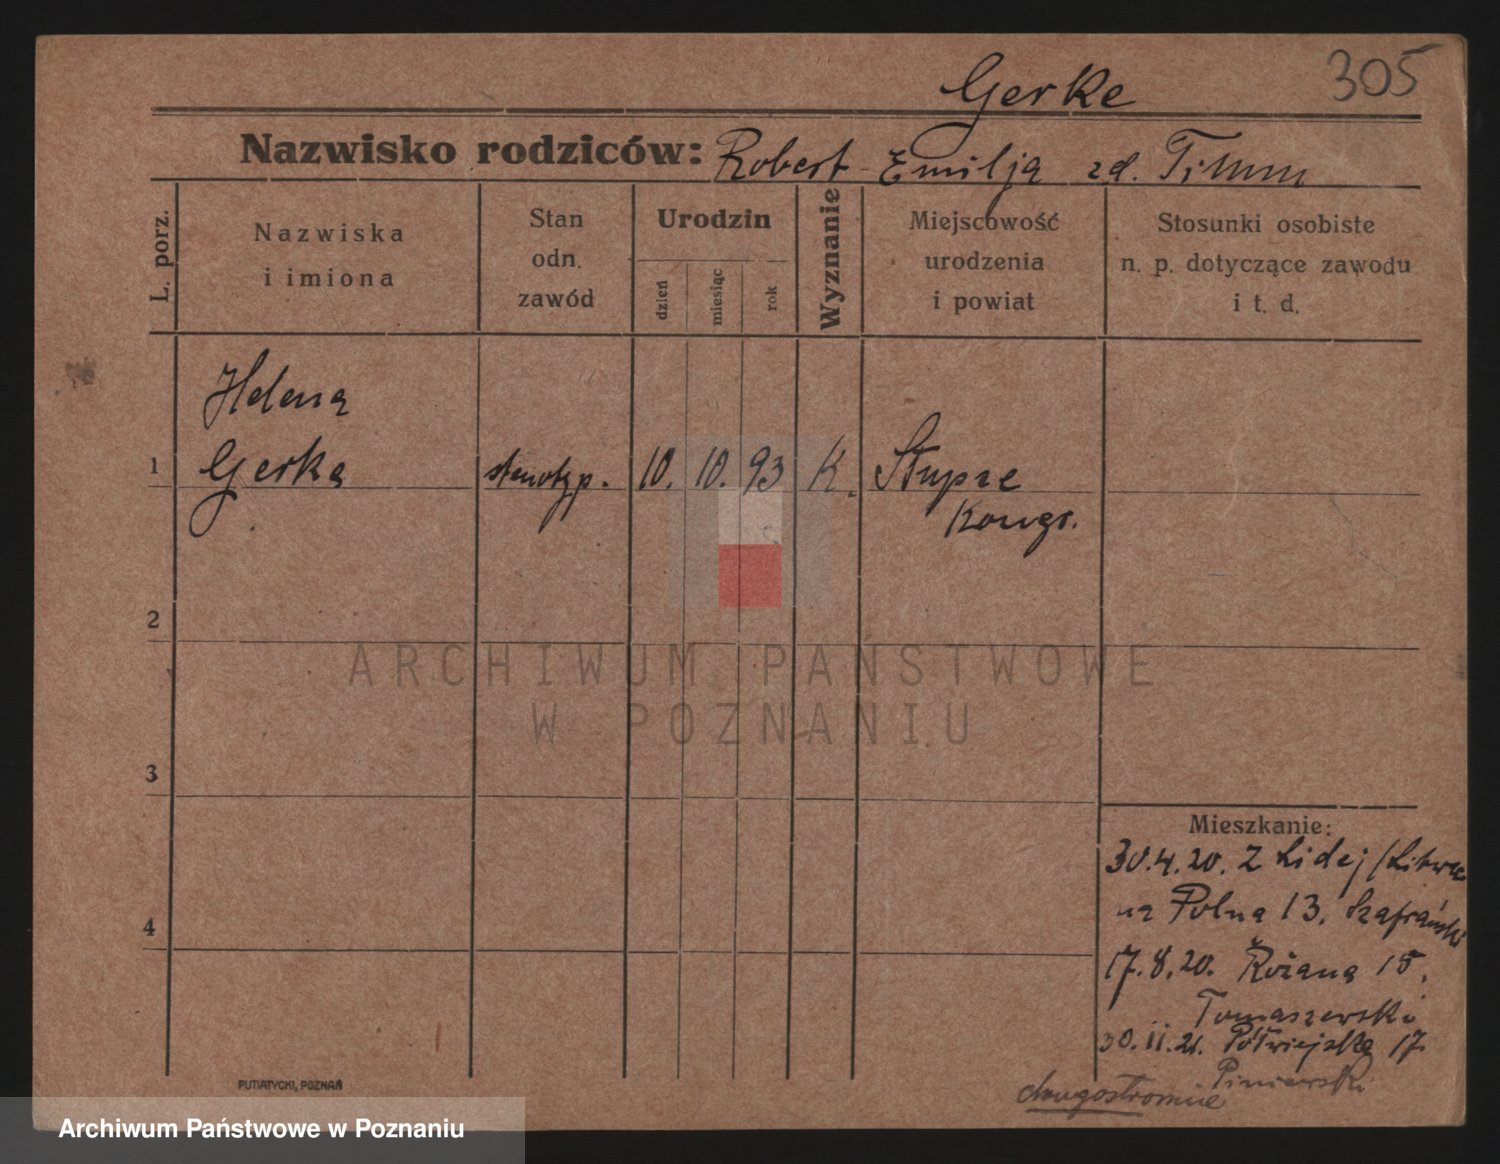 305
Gerke
Nazwisko rodziców: Robert - Emilja zd. Timm
L. porz.
Nazwiska i imiona
Stan odn. zawód
Urodzin
dzień
miesiąc
rok
Wyznanie
Miejscowość urodzenia i powiat
Stosunki osobiste n. p. dotyczące zawodu i t. d.
Helena
1 Gerka stenotyp. 10. 10. 93 K. Stupce
Kongr.
2
3
4
ARCHIWUM PAŃSTWOWE
W POZNANIU
Mieszkanie:
30.4.20. z Lidej /Litwa
na Polna 13. Szafrański
17.8.20. Różana 15.
Tomaszewski
30.11.21. Półwiejska 17
drugostronnie
PUTIATYCKI, POZNAŃ
Archiwum Państwowe w Poznaniu